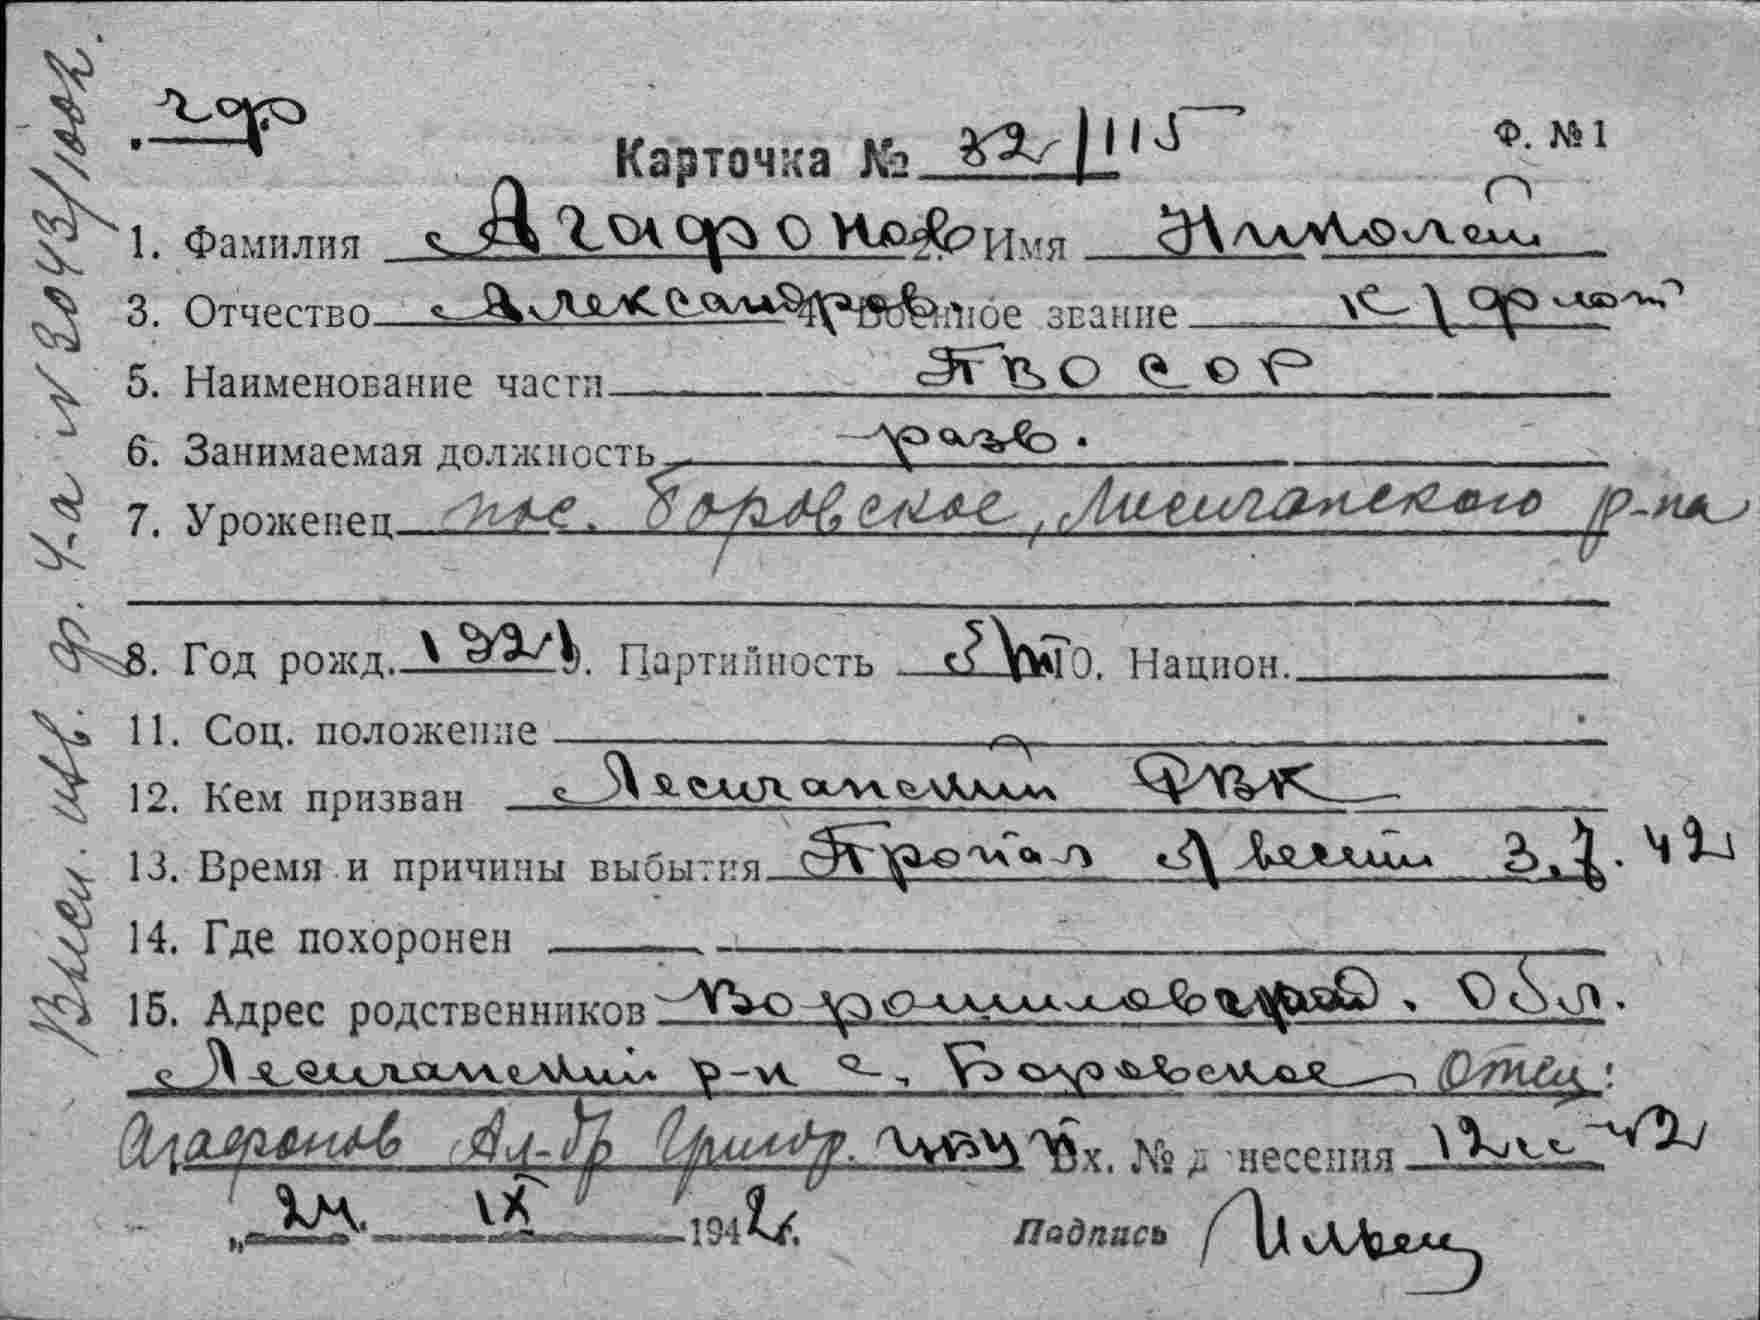 Ф. №1
Карточка № 32/115
1. Фамилия Агафонов 2. Имя Николай
3. Отчество Александров. 4. Военное звание к/флот
5. Наименование части ПВО СОР
6. Занимаемая должность разв.
7. Уроженец пос. Боровское, Лисичанского р-на
8. Год рожд. 1921 9. Партийность б/п 10. Национ.
11. Соц. положение
12. Кем призван Лесичанский РВК
13. Время и причины выбытия Пропал без вести 3.7.42
14. Где похоронен
15. Адрес родственников Ворошиловград. Обл.
Лесичанский р-н с. Боровское отец:
Агафонов Ал-др Григор. Вх. № донесения
„24. IX 1942г. Подпись